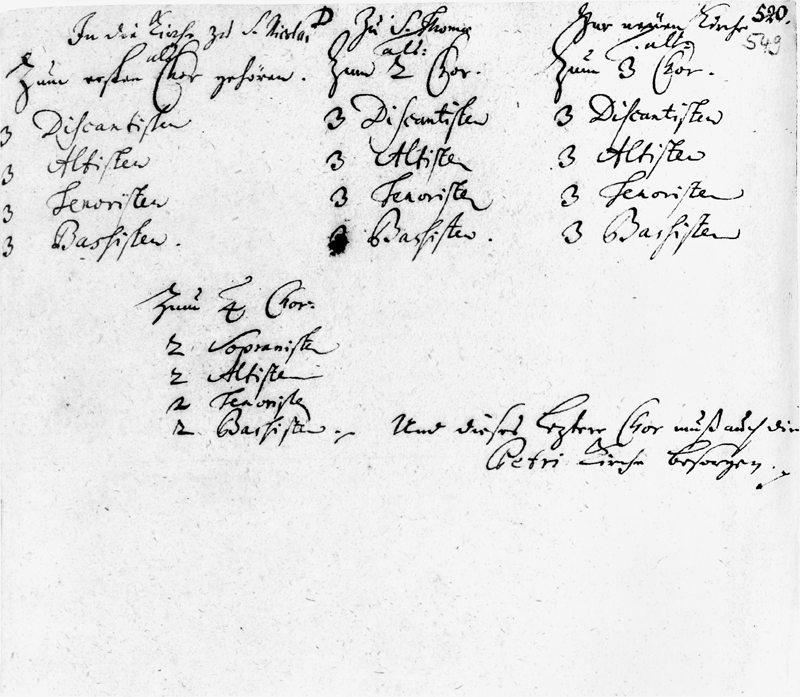 520.
549
In die Kirche zu S. Nicolai
als
Zum ersten Chor gehören.
3 Discantisten
3 Altisten
3 Tenoristen
3 Bassisten.
Zu S. Thomæ
als:
Zum 2 Chor.
3 Discantisten
3 Altisten
3 Tenoristen
Bassisten.
Zur neüen Kirche
als:
Zum 3 Chor.
3 Discantisten
3 Altisten
3 Tenoristen
3 Bassisten
Zum 4 Chor:
2 Sopranisten
2 Altisten
2 Tenoristen
2 Bassisten. Und dieses leztere Chor muß auch die
Petri Kirche besorgen.